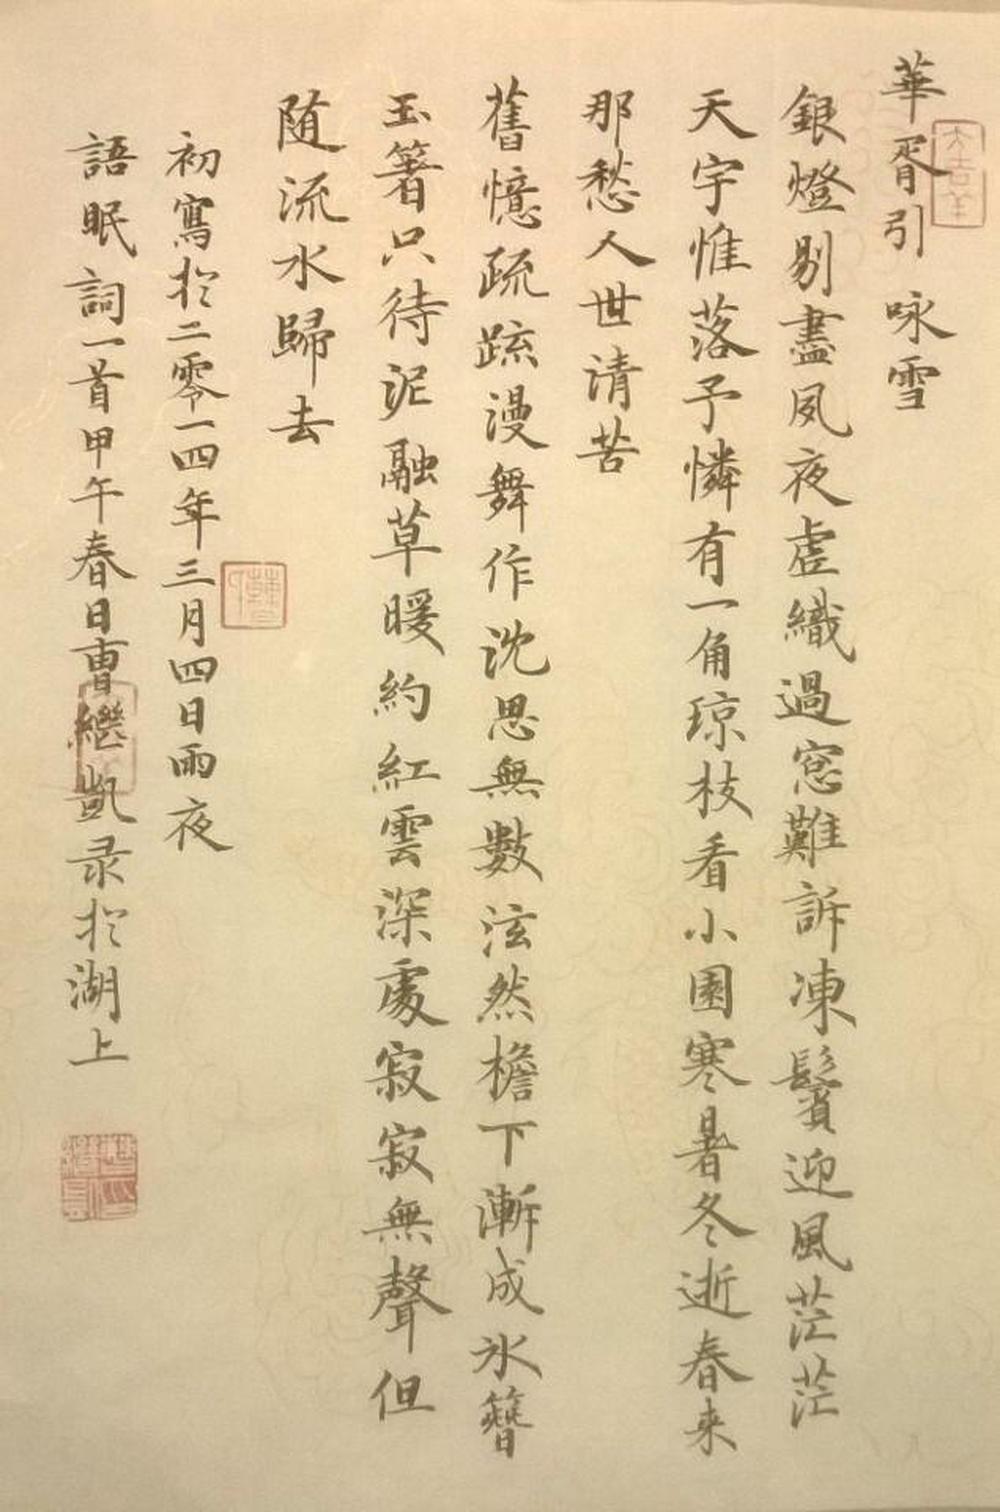 華胥引 咏雪
銀燈剔盡夙夜虛織過窓難訴凍鬢迎風茫茫
天宇惟落予憐有一角琼枝看小園寒暑冬逝春来
那愁人世请苦
舊憶疏疏漫舞作沈思無數泫然檐下漸成氷簪
玉箸只待泥融草暖約紅雲深處寂寂無聲但
随流水歸去
初寫於二零一四年三月四日雨夜
語眠詞一首甲午春日曹繼凱录於湖上
大吉羊